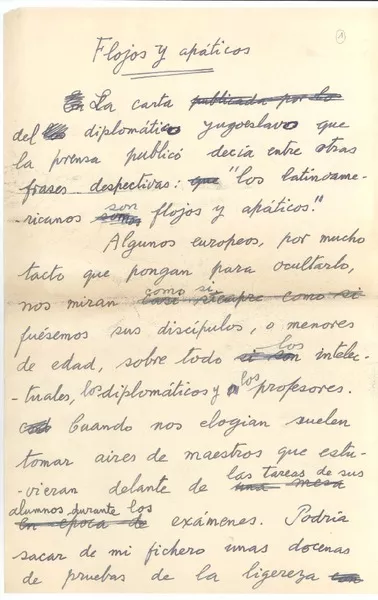 1
Flojos y apáticos
En La carta publicada por la
del diplomático yugoeslavo que
la prensa publicó decía entre otras
frases despectivas: que "los latinoame-
-ricanos son flojos y apáticos."
Algunos europeos, por mucho
tacto que pongan para ocultarlo,
nos miran casi siempre como si como si
fuésemos sus discípulos, o menores
de edad, sobre todo si son los intelec-
-tuales, los diplomáticos y los profesores.
Cuando nos elogian suelen
tomar aires de maestros que estu-
-vieran delante de una mesa las tareas de sus
alumnos durante los
en época de exámenes. Podría
sacar de mi fichero unas docenas
de pruebas de la ligereza